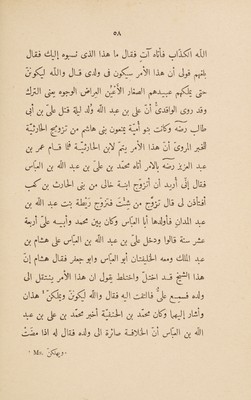 ٥٨
اللـه اكذاب فأتاه آتٍ فقال ما هذا الذى تنسبوه اليك فقال
بلغهم قولى أن هذا الأمر سيكون فى ولدى قال واللـه ليكوننّ
حتى يملكهم عبيدهم الصغار الأعْيُن العراض الوجوه يعنى الترك
وقد روى الواقدىّ أنّ على بن عبد اللـه وُلد ليلة قتل علىّ بن أبى
طالب رضه وكانت بنو أُميّة يمنعون بنى هاشم من تزويج الحارثيّة
للخبر المروىّ أنّ هذا الأمر يتمّ لابن الحارثيّـة فلمّا قام عمر بن
عبد العزيز رضه بالأمر أتاه محمّد بن علىّ بن عبد اللـه بن العبّاس
فقال إنّى أُريد أن أتزوّج ابنـة خالى من بنى الحارث بن كعب
أفتأذن لى قال تزوّج من شِئْتَ فتزوّج رَيْطة بنت عبد اللـه بن
عبد المدان فأولدها أبا العبّاس وكان بين محمد وأبيـه علىّ أربعة
عشر سنة قالوا ودخل علىّ بن عبد اللـه بن العبّاس على هشام بن
عبد الملك ومعه الخليفتان أبو العبّاس وأبو جعفر فقال هشام إنّ
هذا الشيخ قد اختلّ واختلط يقول ان هذا الأمر ينتقل الى
ولده فسمع علىٌّ فالتفت اليه فقال واللـه ليكوننّ وليملكنّ¹ هذان
وأشار إليهما وكان محمّد بن الحنفيّة أخبر محمّد بن على بن عبد
اللـه بن العبّاس أنّ الخلافـة صائرة الى ولده فقال له اذا مضتْ
¹ Ms. ويملكنّ.